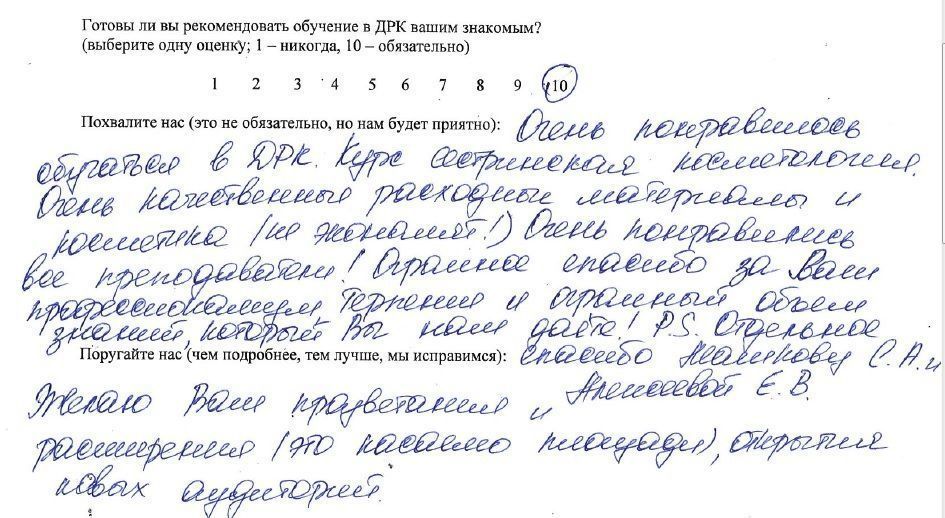 Готовы ли вы рекомендовать обучение в ДРК вашим знакомым?
(выберите одну оценку; 1 – никогда, 10 – обязательно)
1 2 3 4 5 6 7 8 9 10
Похвалите нас (это не обязательно, но нам будет приятно): Очень понравилось
обучаться в ДРК. Курс сестринская косметология.
Очень качественные расходный материалы и
косметика (не экономят!) Очень понравились
все преподаватели! Огромное спасибо за Ваш
профессионализм, терпение и огромный объем
знаний, который Вы нам даёте! P.S. Отдельное
Поругайте нас (чем подробнее, тем лучше, мы исправимся): спасибо С.А. и
Желаю Вам процветания и Е.В.
расширения (это касаемо площади), открытия
новых аудиторий.